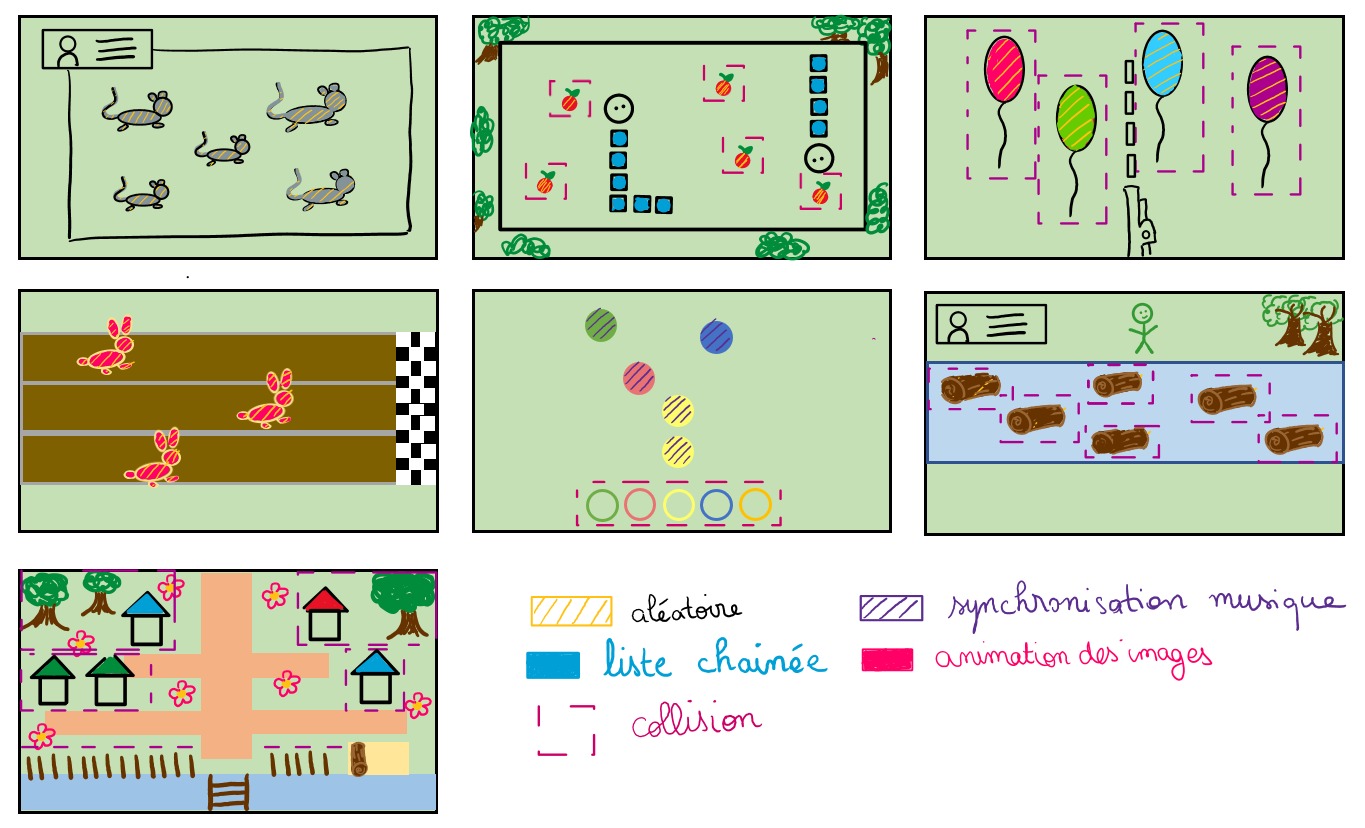 aléatoire
synchronisation musique
liste chainée
animation des images
collision